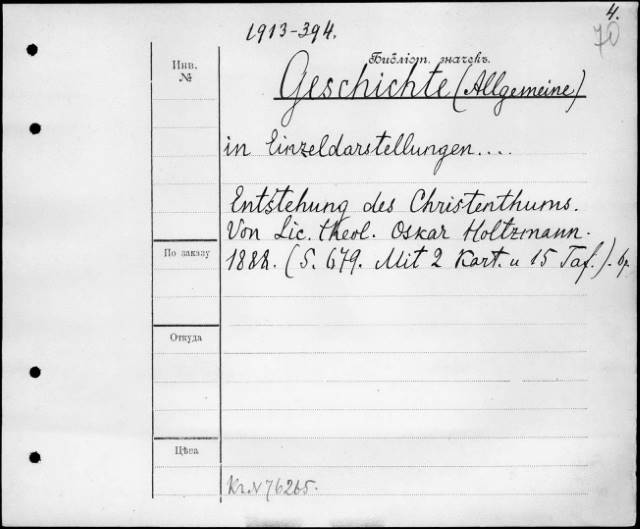 4.
70
1913-394.
Инв.
№
Библіот. значекъ.
Geschichte (Allgemeine)
in Einzeldarstellungen....
Entstehung des Christenthums.
Von Lic. theol. Oskar Holtzmann.
По заказу
1888. (S. 679. Mit 2 Kart. u 15 Taf.).
Откуда
Цѣна
Kr. N 76265.